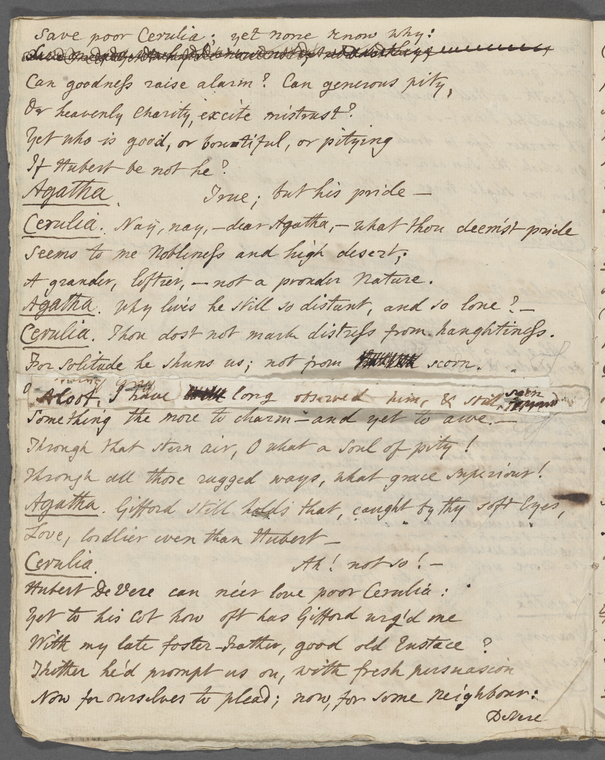 Save poor Cerulia; yet none know why:
Can goodness raise alarm? Can generous pity,
Or heavenly Charity, excite mistrust?
Yet who is good, or bountiful, or pitying
If Hubert be not he?
Agatha. True; but his pride —
Cerulia. Nay, nay, — dear Agatha, — what thou deem'st pride
Seems to me Nobleness and high desert;
A grander, loftier, — not a prouder Nature.
Agatha. Why lives he still so distant, and so lone? —
Cerulia. Thou dost not mark distress from haughtiness.
For Solitude he shuns us; not from scorn.
Aloof, I have long observed him, & still seen
Something the more to charm — and yet to awe. —
Through that stern air, O what a Soul of pity!
Through all those rugged ways, what grace superiour!
Agatha. Gifford still holds that, caught by thy soft Eyes,
Love, lordlier even than Hubert —
Cerulia. Ah! not so! —
Hubert De Vere can ne'er love poor Cerulia:
Yet to his Cot how oft has Gifford urg'd me
With my late foster-Father, good old Eustace?
Thither he'd prompt us on, with fresh persuasion
Now for ourselves to plead; now, for some Neighbour:
DeVere